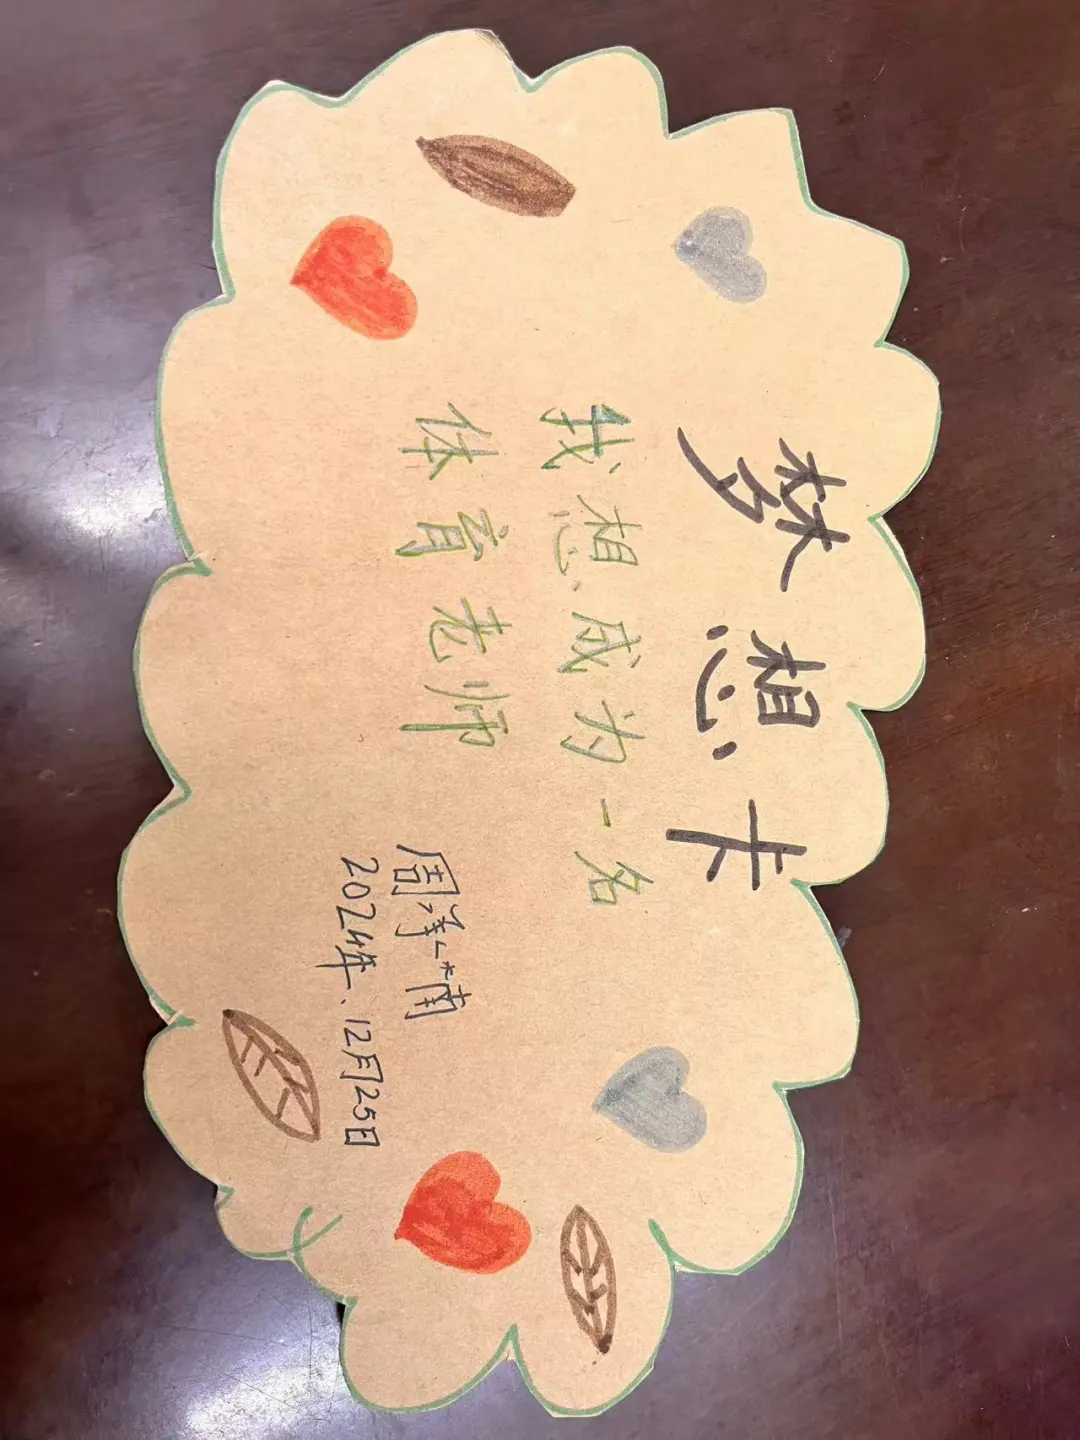 梦想卡
我想成为一名
体育老师
周洋
2024年、12月25日